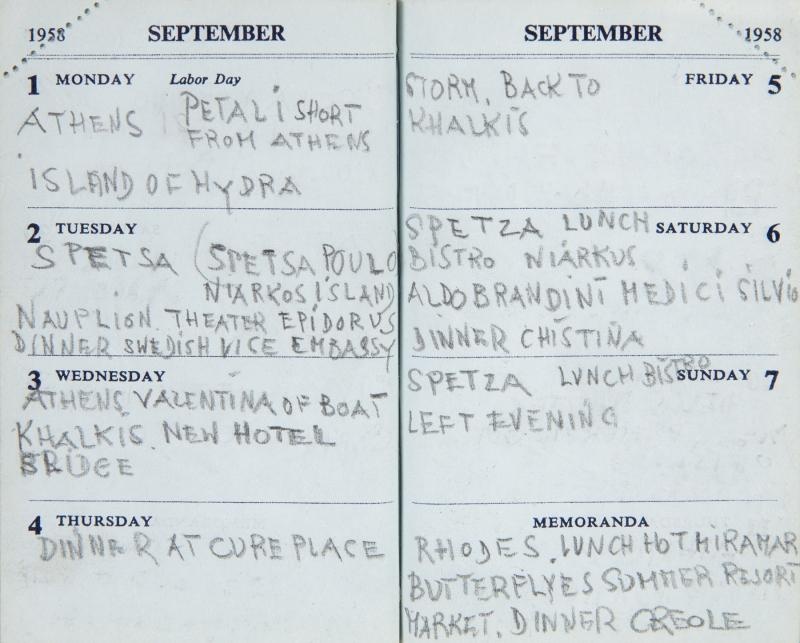 1958 SEPTEMBER
1 MONDAY Labor Day
ATHENS PETALI SHORT
FROM ATHENS
ISLAND OF HYDRA
2 TUESDAY
SPETSA (SPETSAPOULO
NIARKOS ISLAND
NAUPLION. THEATER EPIDORUS
DINNER SWEDISH VICE EMBASSY
3 WEDNESDAY
ATHENS VALENTINA OF BOAT
KHALKIS. NEW HOTEL
BRIDGE
4 THURSDAY
DINNER AT CURE PLACE
SEPTEMBER 1958
FRIDAY 5
STORM, BACK TO
KHALKIS
SATURDAY 6
SPETZA LUNCH
BISTRO NIARKUS
ALDOBRANDINI MEDICI SILVIO
DINNER CHISTINA
SUNDAY 7
SPETZA LUNCH BISTRO
LEFT EVENING
MEMORANDA
RHODES. LUNCH HOT MIRAMAR
BUTTERFLYES SUMMER RESORT
MARKET. DINNER CREOLE